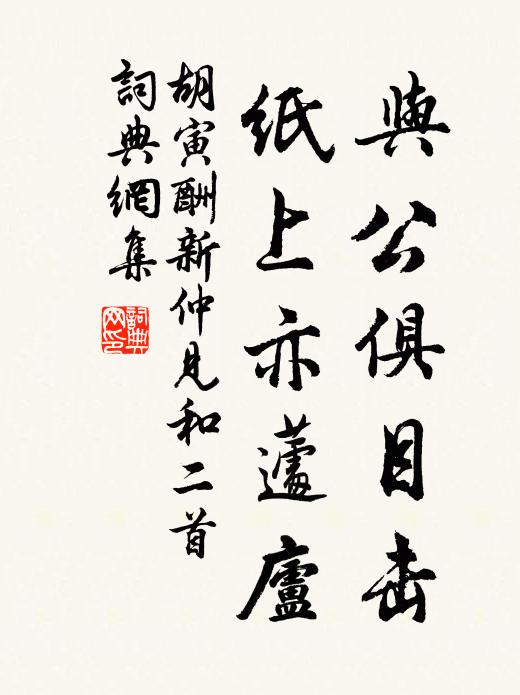 與公俱目击
紙上亦蘧廬
胡寅酬新仲見和二首
詞典網集
詞典网印